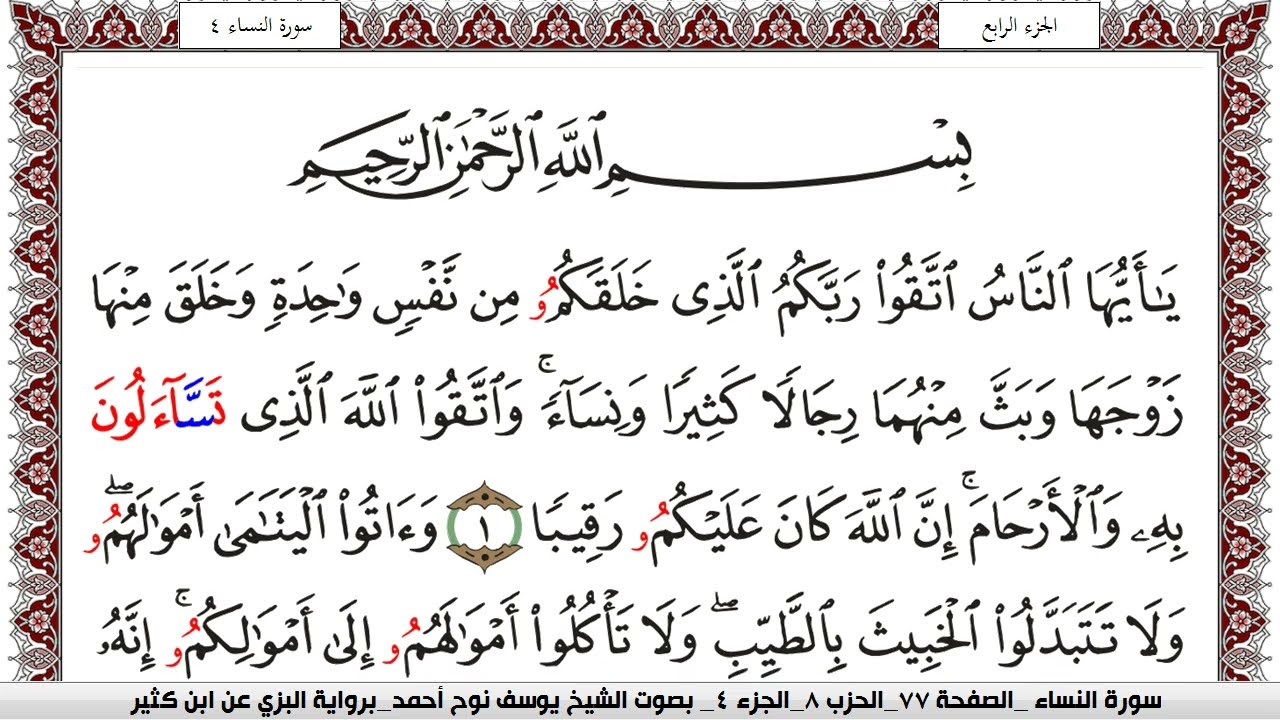 الجزء الرابع
سورة النساء ٤
بِسْمِ ٱللَّهِ ٱلرَّحْمَٰنِ ٱلرَّحِيمِ
يَٰٓأَيُّهَا ٱلنَّاسُ ٱتَّقُوا۟ رَبَّكُمُ ٱلَّذِى خَلَقَكُمُۥ مِن نَّفْسٍ وَٰحِدَةٍ وَخَلَقَ مِنْهَا
زَوْجَهَا وَبَثَّ مِنْهُمَا رِجَالًا كَثِيرًا وَنِسَآءً ۚ وَٱتَّقُوا۟ ٱللَّهَ ٱلَّذِى تَسَّآءَلُونَ
بِهِۦ وَٱلْأَرْحَامَ ۚ إِنَّ ٱللَّهَ كَانَ عَلَيْكُمُۥ رَقِيبًا ١ وَءَاتُوا۟ ٱلْيَتَٰمَىٰ أَمْوَٰلَهُمُۥ ۖ
وَلَا تَتَبَدَّلُوا۟ ٱلْخَبِيثَ بِٱلطَّيِّبِ ۖ وَلَا تَأْكُلُوٓا۟ أَمْوَٰلَهُمُۥ إِلَىٰ أَمْوَٰلِكُمُۥ ۚ إِنَّهُۥ
سورة النساء _الصفحة ٧٧_الحزب ٨_الجزء ٤_ بصوت الشيخ يوسف نوح أحمد_برواية البزي عن ابن كثير